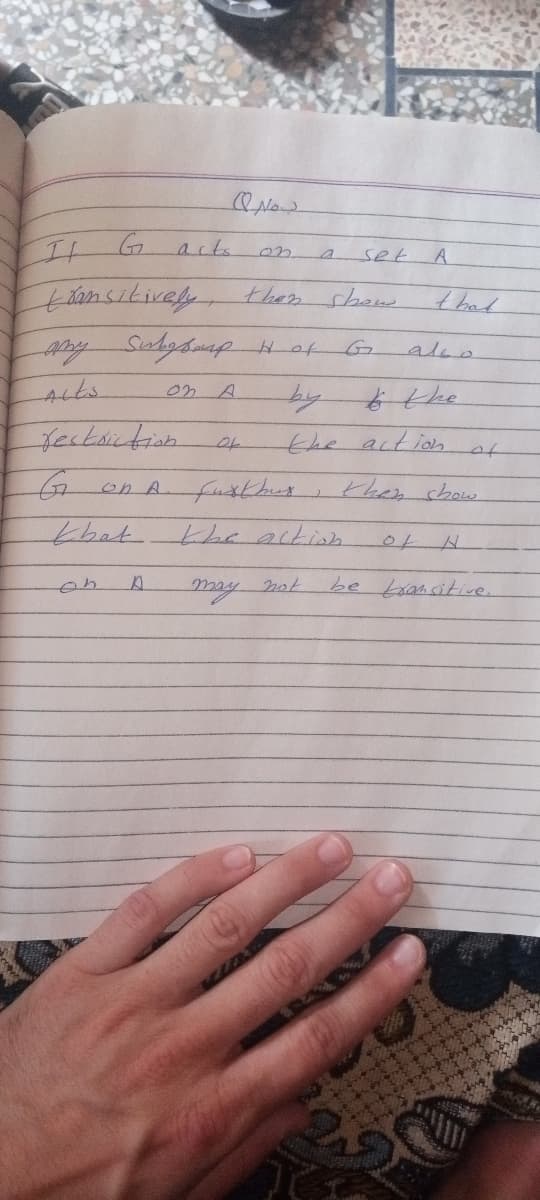 Q No 3
If G acts on a set A
transitively, then show that
any Subgroup H of G also
acts on A by the
restriction of the action of
G on A. further, then show
that the action of H
on A may not be transitive.